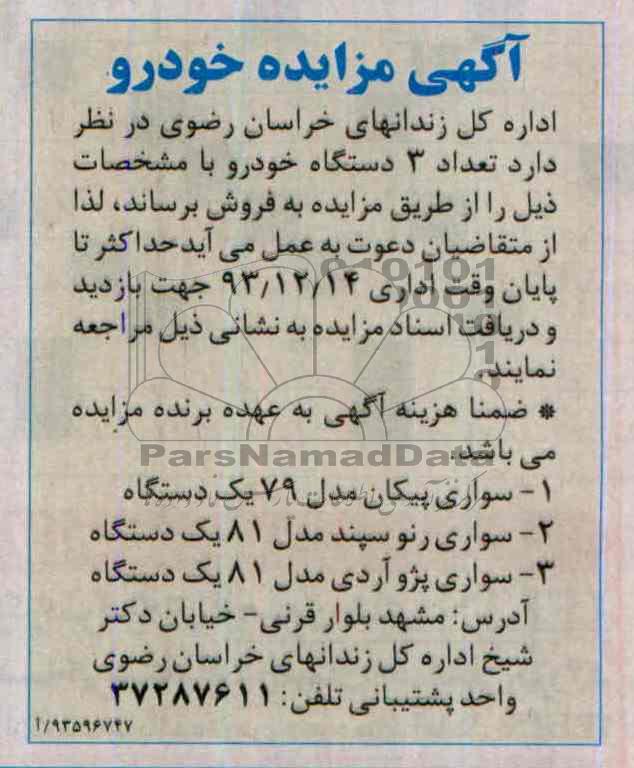 آگهی مزایده خودرو
اداره کل زندانهای خراسان رضوی در نظر
دارد تعداد ۳ دستگاه خودرو با مشخصات
ذیل را از طریق مزایده به فروش برساند، لذا
از متقاضیان دعوت به عمل می آید حداکثر تا
پایان وقت اداری ۹۳/۱۲/۱۴ جهت بازدید
و دریافت اسناد مزایده به نشانی ذیل مراجعه
نمایند.
* ضمنا هزینه آگهی به عهده برنده مزایده
می باشد.
ParsNamadData
۱- سواری پیکان مدل ۷۹ یک دستگاه
۲- سواری رنو سپند مدل ۸۱ یک دستگاه
۳- سواری پژو آردی مدل ۸۱ یک دستگاه
آدرس: مشهد بلوار قرنی- خیابان دکتر
شیخ اداره کل زندانهای خراسان رضوی
واحد پشتیبانی تلفن: ۳۷۲۸۷۶۱۱
۹۳۵۹۶۷۴۷/أ